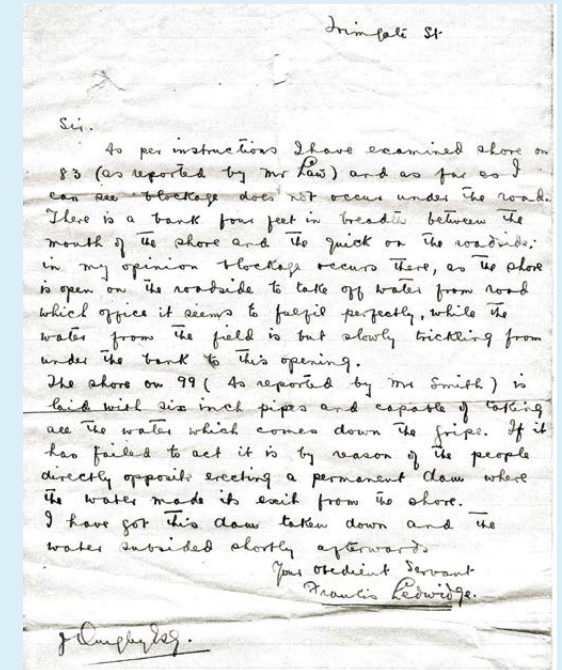 Trimgate St
Sir.
As per instructions I have examined shore on
83 (as reported by Mr Law) and as far as I
can see blockage does not occur under the road.
There is a bank four feet in breadth between the
mouth of the shore and the quick on the roadside;
in my opinion blockage occurs there, as the shore
is open on the roadside to take off water from road
which office it seems to fulfil perfectly, while the
water from the field is but slowly trickling from
under the bank to this opening.
The shore on 99 (As reported by Mr Smith) is
laid with six inch pipes and capable of taking
all the water which comes down the gripe. If it
has failed to act it is by reason of the people
directly opposite erecting a permanent dam where
the water made its exit from the shore.
I have got this dam taken down and the
water subsided shortly afterwards
Your obedient Servant
Francis Ledwidge.
J Quigley Esq.